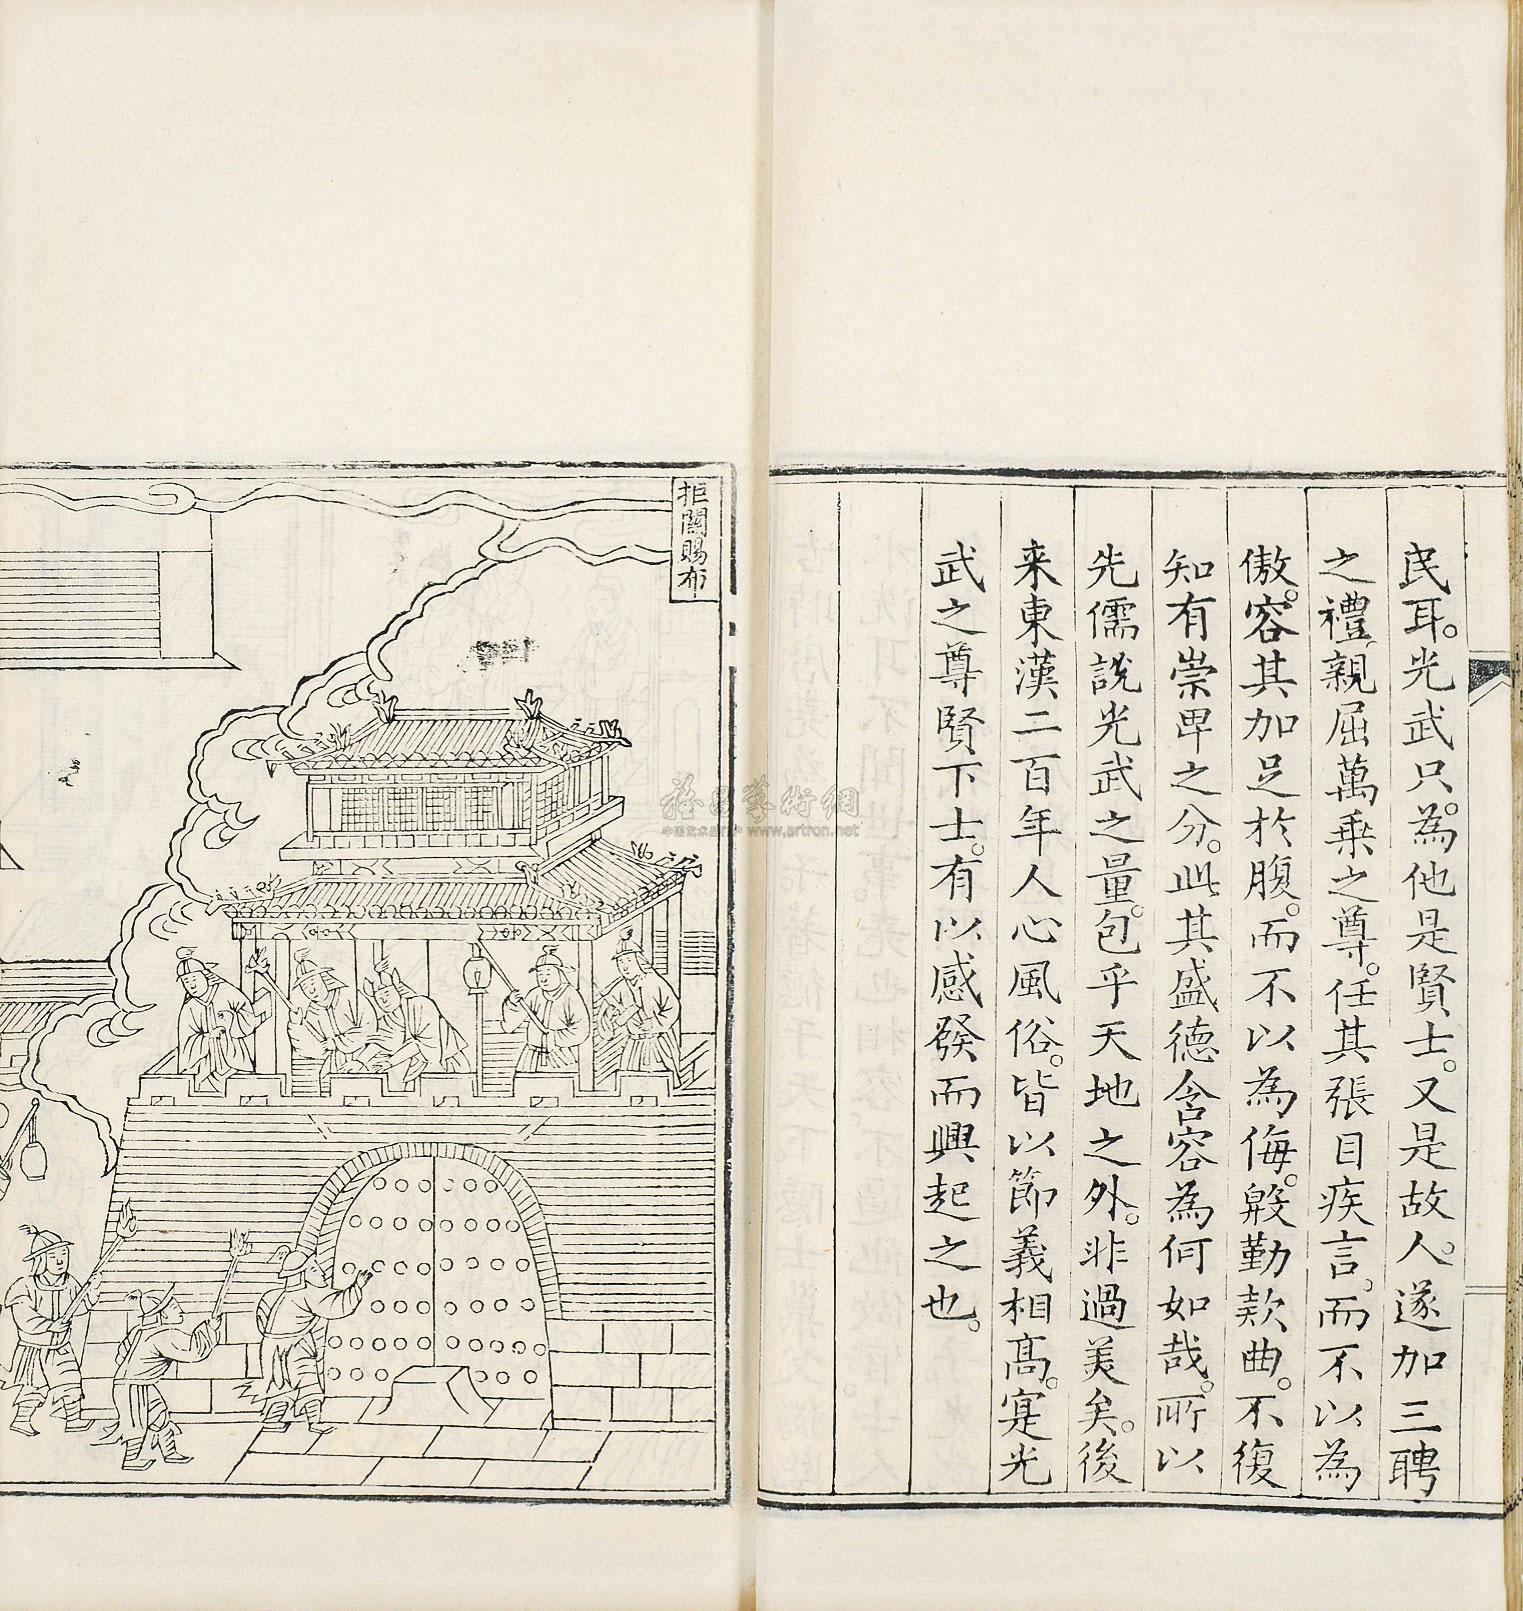 民耳。光武只為。他是賢士。又是故人。遂加三聘
之禮、親屈萬乗之尊。任其張目疾言。而不以為
傲。容其加足於腹。而不以為侮。殷勤款曲。不復
知有崇卑之分。此其盛德含容為何如哉。所以
先儒說光武之量。包乎天地之外。非過美矣。後
来東漢二百年人心風俗。皆以節義相高。寔光
武之尊賢下士。有以感發而興起之也。
拒關賜布
雅昌藝術網
www.artron.net